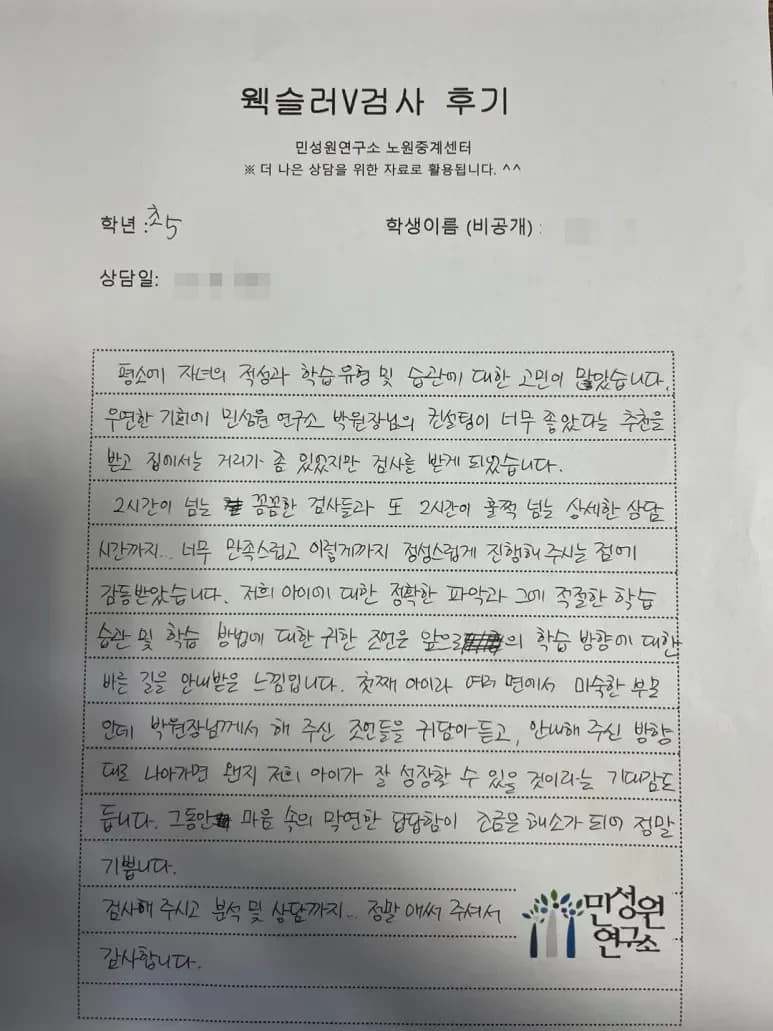 웩슬러V검사 후기
민성원연구소 노원중계센터
※ 더 나은 상담을 위한 자료로 활용됩니다. ^^
학년 : 초5
학생이름 (비공개) :
상담일:
평소에 자녀의 적성과 학습유형 및 습관에 대한 고민이 많았습니다.
우연한 기회에 민성원 연구소 박원장님의 컨설팅이 너무 좋았다는 추천을
받고 집에서는 거리가 좀 있었지만 검사를 받게 되었습니다.
2시간이 넘는 꼼꼼한 검사들과 또 2시간이 훌쩍 넘는 상세한 상담
시간까지... 너무 만족스럽고 이렇게까지 정성스럽게 진행해 주시는 점에
감동받았습니다. 저희 아이에 대한 정확한 파악과 그에 적절한 학습
습관 및 학습 방법에 대한 귀한 조언은 앞으로의 학습 방향에 대한
바른 길을 안내받은 느낌입니다. 첫째 아이라 여러 면에서 미숙한 부모
인데 박원장님께서 해 주신 조언들을 귀담아듣고, 안내해 주신 방향
대로 나아가면 왠지 저희 아이가 잘 성장할 수 있을 것이라는 기대감도
듭니다. 그동안 마음 속의 막연한 답답함이 조금은 해소가 되어 정말
기쁩니다.
검사해 주시고 분석 및 상담까지... 정말 애써 주셔서
감사합니다.
민성원
연구소